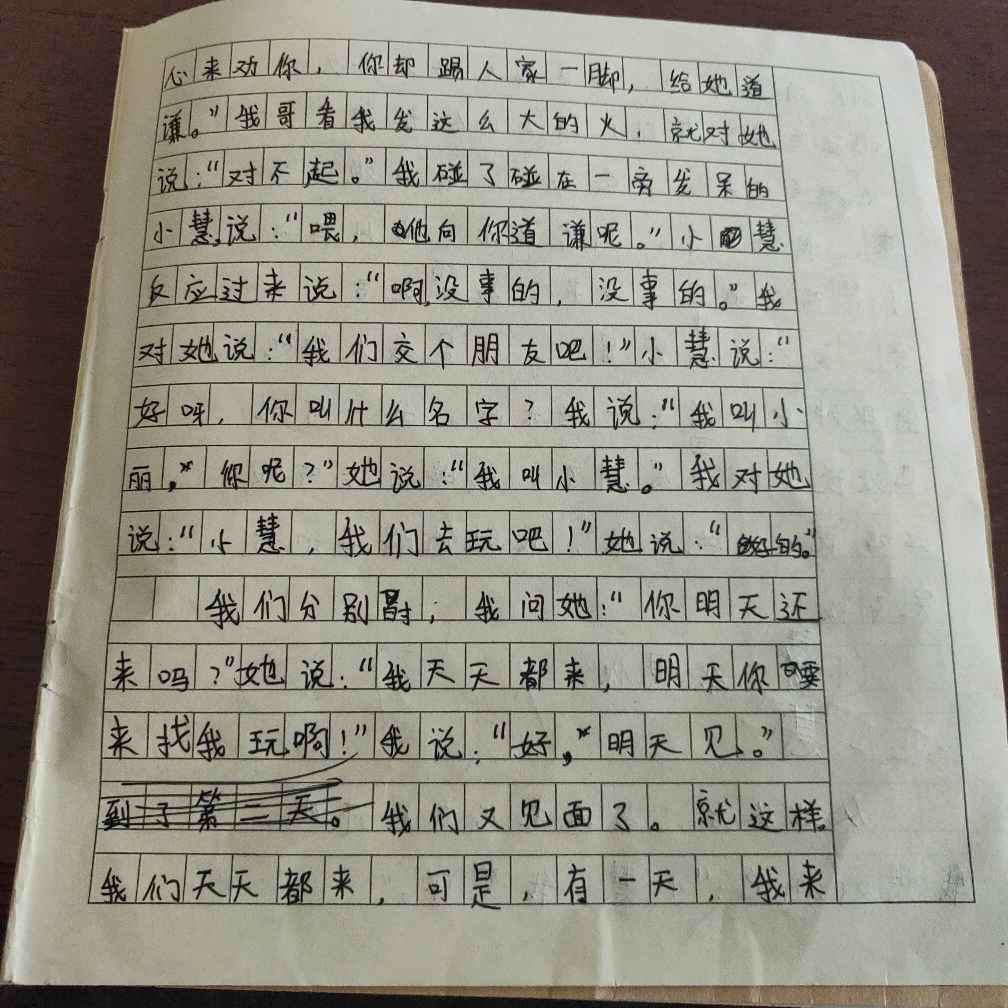 心来劝你，你却踢人家一脚，给她道
谦。”我哥看我发这么大的火，就对她
说：“对不起。”我碰了碰在一旁发呆的
小慧说：“喂，他向你道谦呢。”小慧
反应过来说：“啊，没事的，没事的。”我
对她说：“我们交个朋友吧！”小慧说：“
好呀，你叫什么名字？我说：“我叫小
丽，”你呢？”她说：“我叫小慧。”我对她
说：“小慧，我们去玩吧！”她说：“好的。”
我们分别时，我问她：“你明天还
来吗？”她说：“我天天都来，明天你要
来找我玩啊！”我说：“好，”明天见。”
到了第二天。我们又见面了。就这样。
我们天天都来，可是，有一天，我来